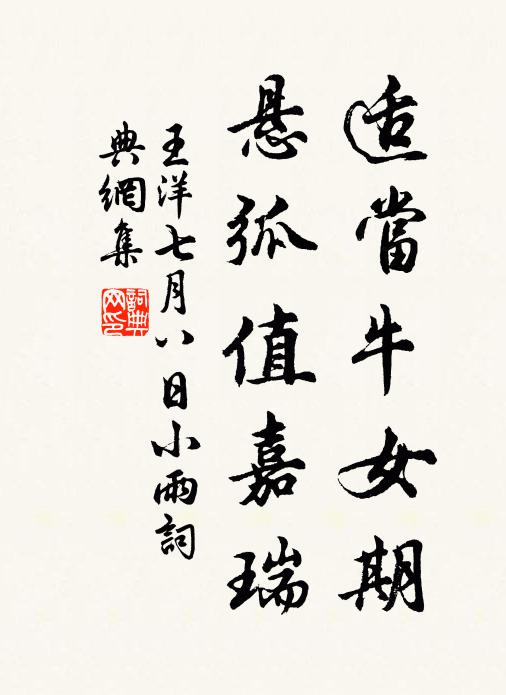 适當牛女期
悬弧值嘉瑞
王洋七月八日小雨詞
典網集
詞典网印